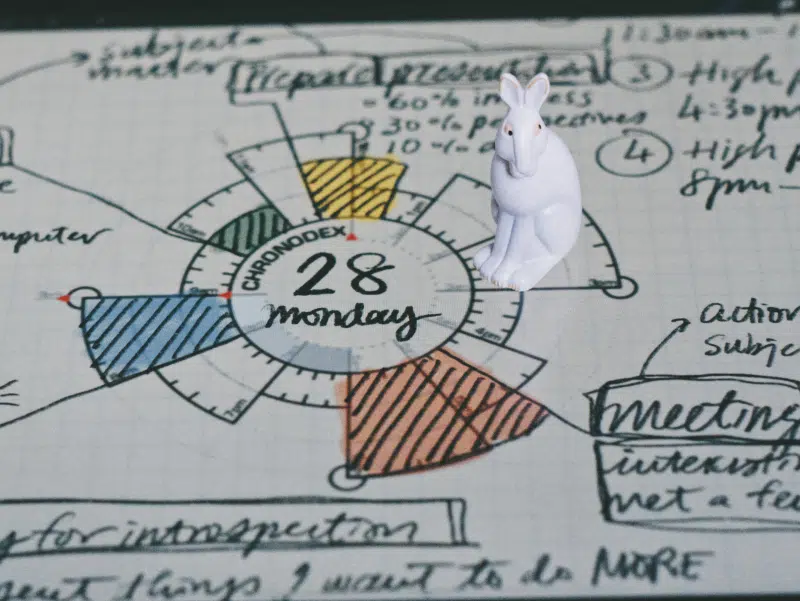 subject
matter
Prepare presentation
- 60% in ess
30% perspectives
10%
11:30am - 1
3 High p
4:30pm
4 High p
8pm -
mputer
CHRONODEX
28
monday
4pm
action
subje
meeting
interesti
met a fe
y for introspection
sent things I want to do MORE